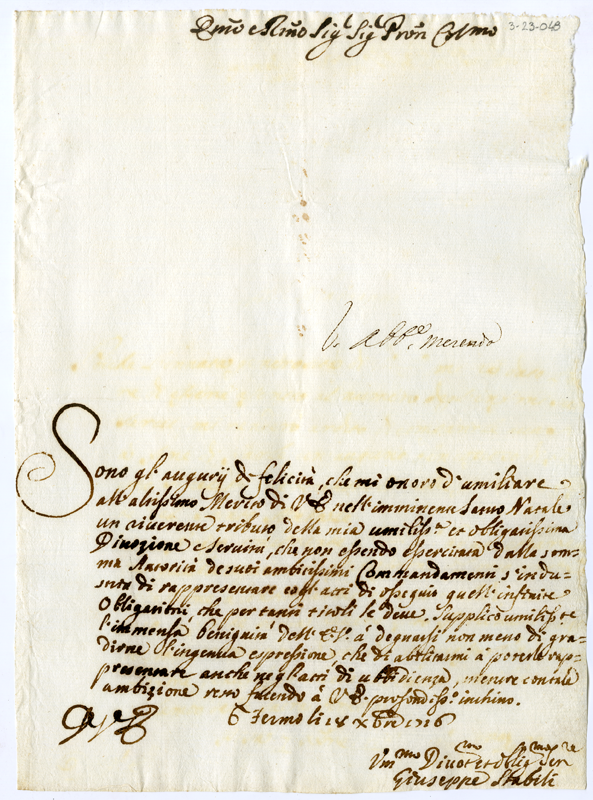 Emo e Rmo Sigr Sigr Pron Colmo
3-23-048
Abbe Merenda
Sono gl'augurij di felicità, che mi onoro d'umiliare
all'altissimo Merito di V E nell'imminente Santo Natale
un riverente tributo della mia umiliss.a et obligatissima
Divozione e servitù, che non essendo esercitata dalla som-
ma Autorità de suoi ambitissimi Commandamenti s'indu-
stria di rappresentare cogl'atti di ossequio quell'infinite
Obligationi, che per tanti titoli le deve. Supplico umiliss.te
l'immensa Benignità dell'E.V. à degnarsi non meno di gra-
dirne l'ingenua espressione, che di abilitarmi à poterle rap-
presentare anche negl'atti di ubbidienza, mentre con tale
ambizione resto facendo à V E. profondiss.o inchino.
Fermo li 18 Xbre 1716
Vmmo Divotmo et obligmo Serre
Giuseppe Stabili